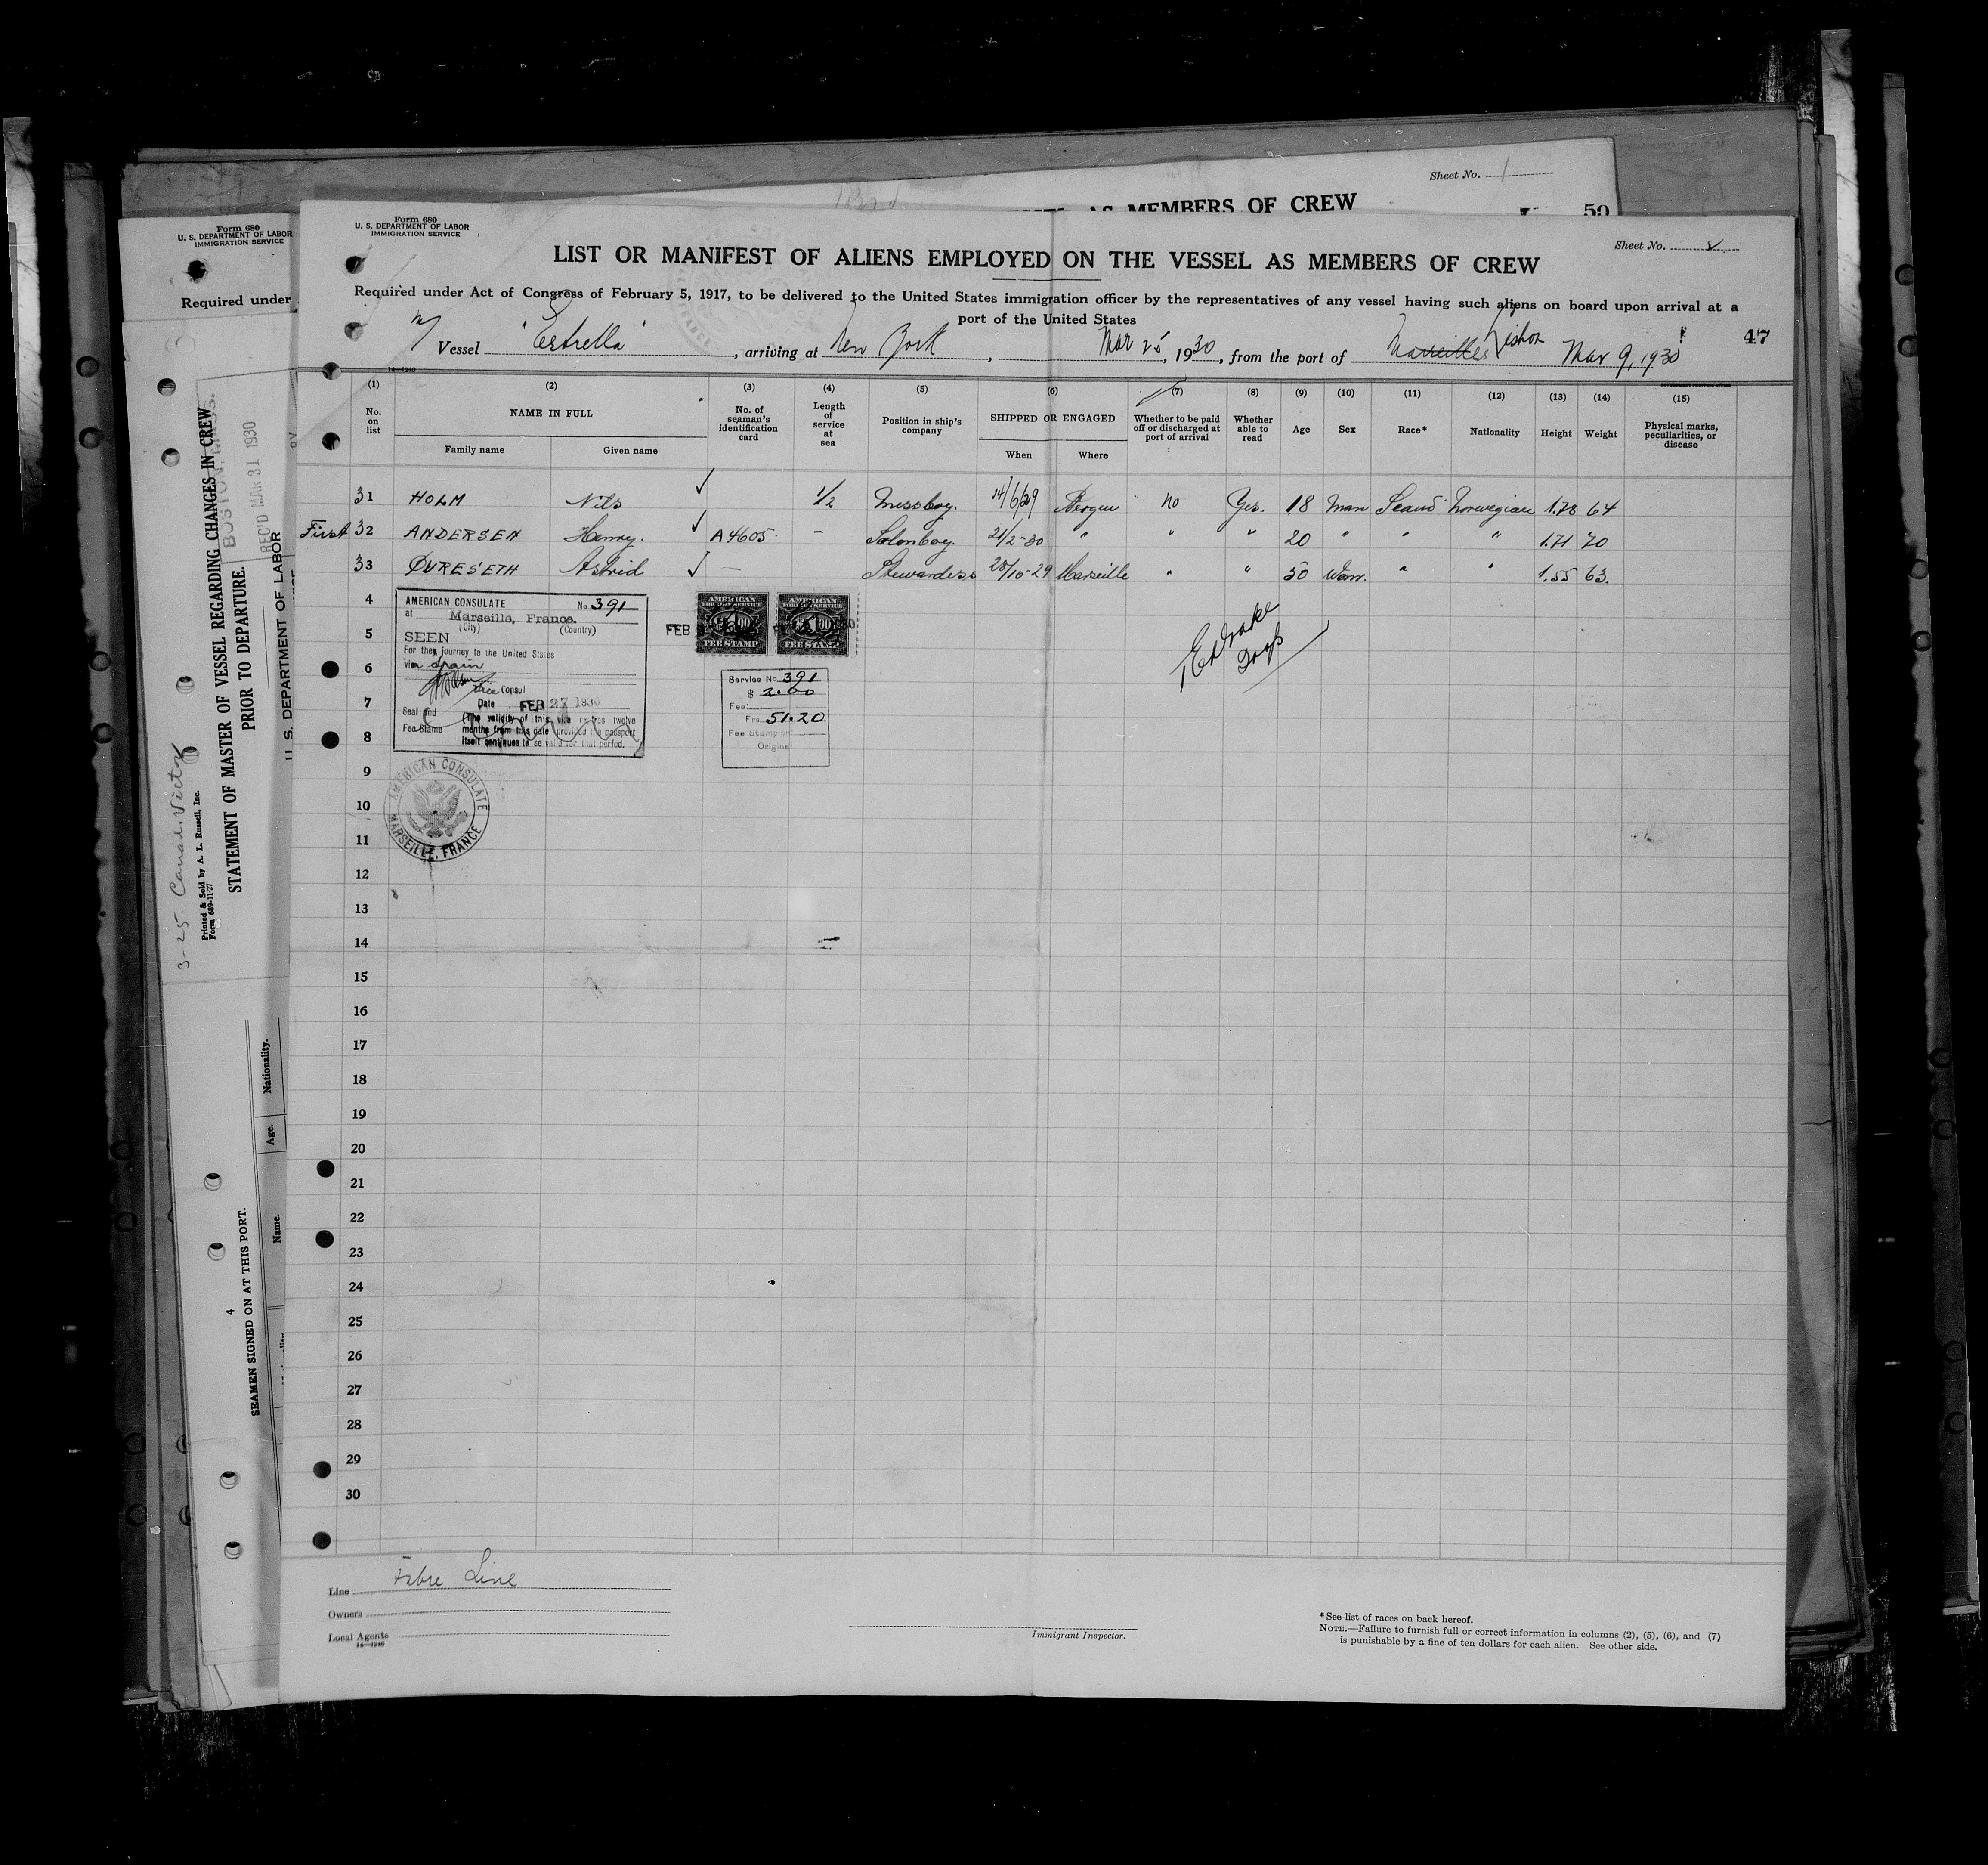 Sheet No. 1
AS MEMBERS OF CREW
50
Form 680
U. S. DEPARTMENT OF LABOR
IMMIGRATION SERVICE
Required under
Form 680
U. S. DEPARTMENT OF LABOR
IMMIGRATION SERVICE
Sheet No.
LIST OR MANIFEST OF ALIENS EMPLOYED ON THE VESSEL AS MEMBERS OF CREW
Required under Act of Congress of February 5, 1917, to be delivered to the United States immigration officer by the representatives of any vessel having such aliens on board upon arrival at a
port of the United States
m/ Vessel "Estrella", arriving at New York, Mar 25, 1930, from the port of Marseilles Lisbon Mar 9, 1930
47
14—1240
(1) (2) (3) (4) (5) (6) (7) (8) (9) (10) (11) (12) (13) (14) (15)
No. on list
NAME IN FULL
Family name
Given name
No. of seaman's identification card
Length of service at sea
Position in ship's company
SHIPPED OR ENGAGED
When
Where
Whether to be paid off or discharged at port of arrival
Whether able to read
Age
Sex
Race*
Nationality
Height
Weight
Physical marks, peculiarities, or disease
31 HOLM Nils ✓ 1/2 Messboy. 14/6/29 Bergen no Yes. 18 Man Scand Norwegian 1.78 64
First 32 ANDERSEN Henry. ✓ A4605 - Salonboy. 21/2-30 " " " 20 " " " 1.71 70
33 DURESETH Astrid ✓ - Stewardess 28/10-29 Marseille " " 50 Wom. " " 1.55 63.
4
5
6
7
8
9
10
11
12
13
14
15
16
17
18
19
20
21
22
23
24
25
26
27
28
29
30
AMERICAN CONSULATE No. 391
at Marseille, France.
(City) (Country)
SEEN
For the journey to the United States
via Spain
Vice Consul
Date FEB 27 1930
Seal and
Fee Stamp
(The validity of this visa expires twelve
months from this date provided the passport
itself continues to be valid for that period.
FEB
AMERICAN
FOREIGN SERVICE
$1.00
FEE STAMP
AMERICAN
FOREIGN SERVICE
$1.00
FEE STAMP
Service No 391
$ 2.00
Fee:
Frs. 51.20
Fee Stamp on
Original
AMERICAN CONSULATE
MARSEILLE, FRANCE
Line Fabre Line
Owners
Local Agents
14—1240
Immigrant Inspector.
*See list of races on back hereof.
NOTE.—Failure to furnish full or correct information in columns (2), (5), (6), and (7)
is punishable by a fine of ten dollars for each alien. See other side.
3-25
Printed & Sold by A. L. Russell, Inc.
Form 689-11-27
STATEMENT OF MASTER OF VESSEL REGARDING CHANGES IN CREW
PRIOR TO DEPARTURE.
BOSTON, MASS.
REC'D MAR 31 1930
U. S. DEPARTMENT OF LABOR
4
SEAMEN SIGNED ON AT THIS PORT.
Name.
Age.
Nationality.